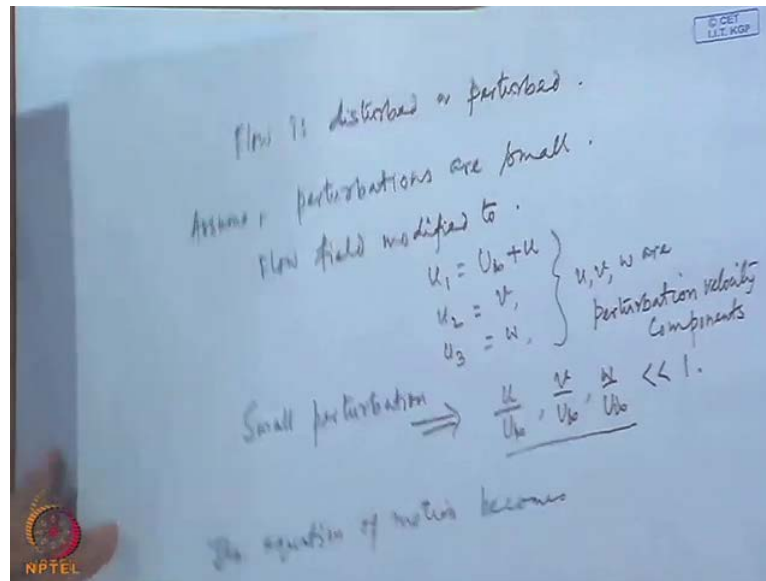 © CET
I.I.T. KGP
Flow is disturbed or perturbed.
Assume, perturbations are small.
Flow field modified to.
u₁ = U∞ + u
u₂ = v,
u₃ = w,
} u, v, w are
perturbation velocity
components
Small perturbation ⟹ u/U∞, v/U∞, w/U∞ << 1.
The equation of motion becomes
NPTEL